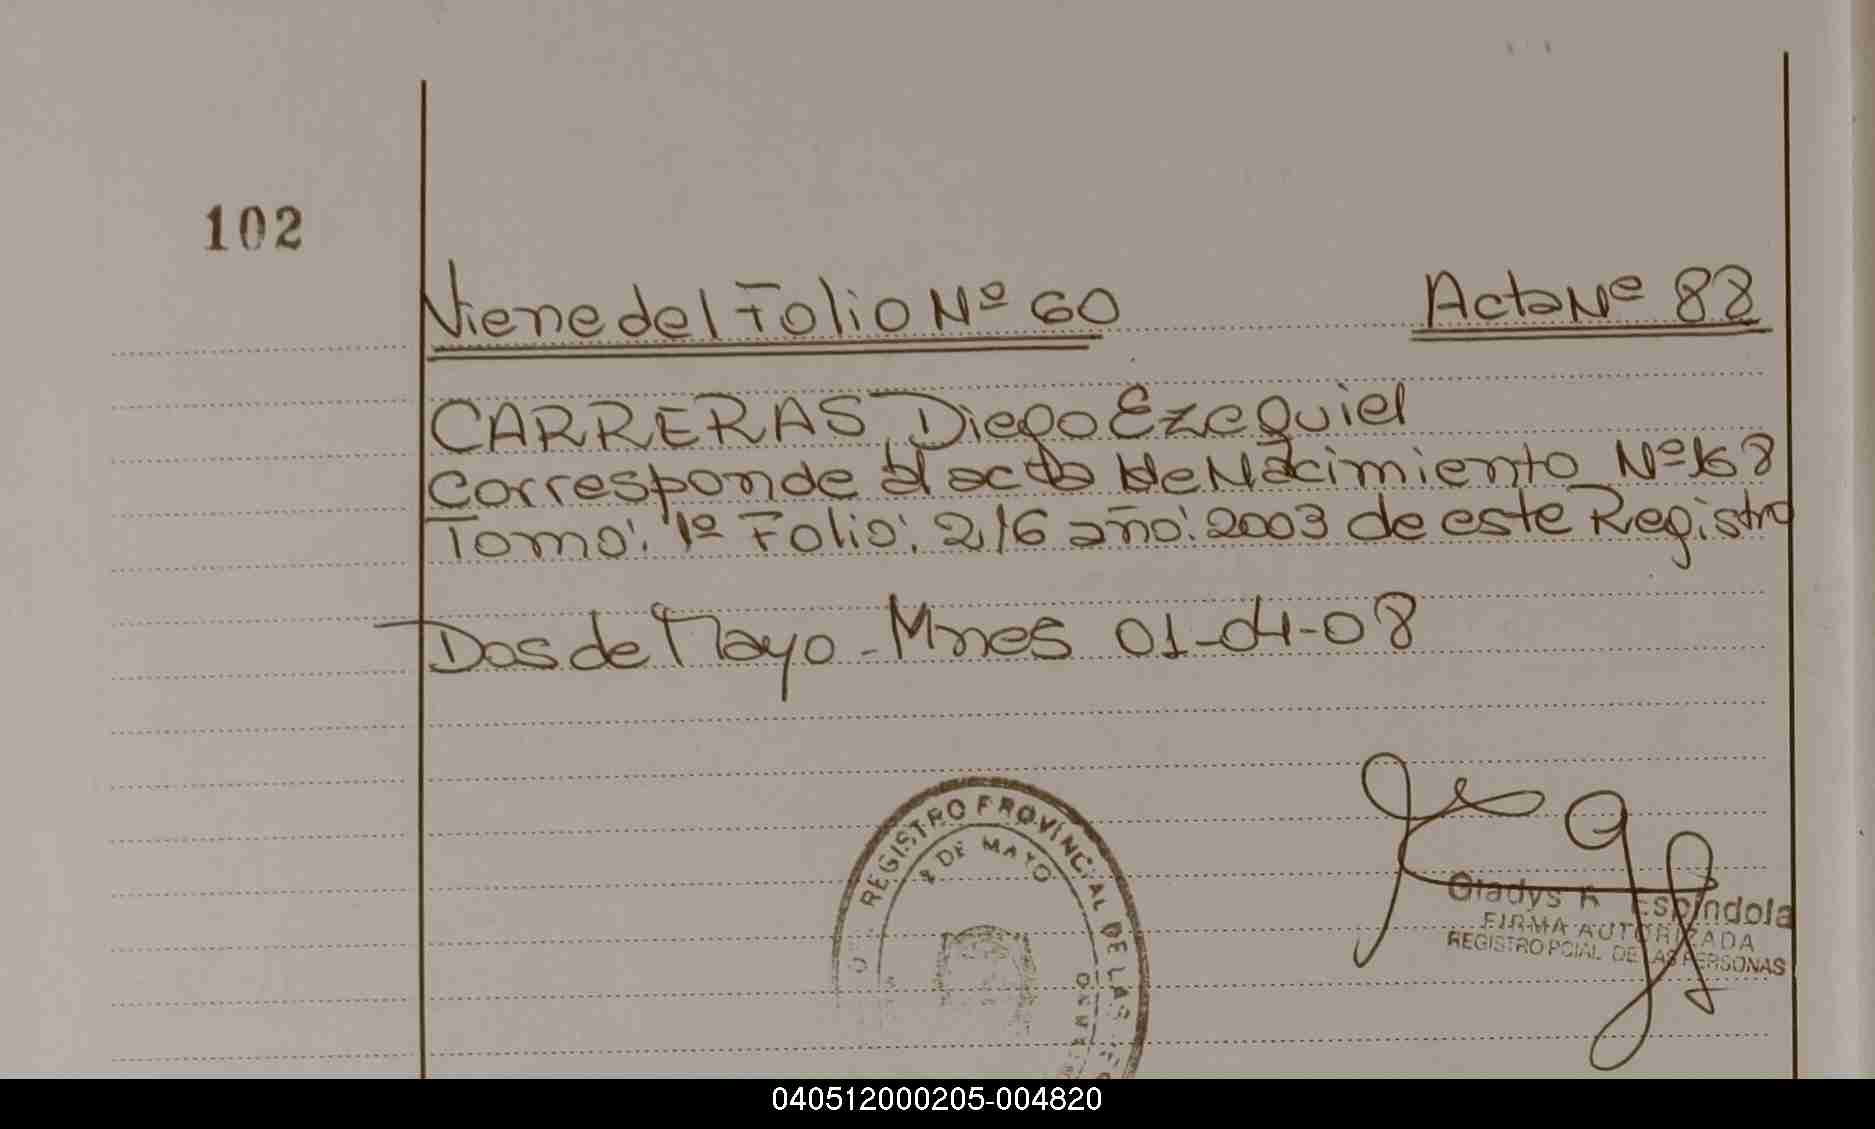 102
Viene del Folio Nº 60 Acta Nº 88
CARRERAS, Diego Ezequiel
corresponde al acta de Nacimiento Nº 168
Tomo: 1º Folio: 216 año: 2003 de este Registro
Dos de Mayo - Mnes 01-04-08
REGISTRO PROVINCIAL DE LAS
2 DE MAYO
Gladys R Espindola
FIRMA AUTORIZADA
REGISTRO PCIAL DE LAS PERSONAS
040512000205-004820